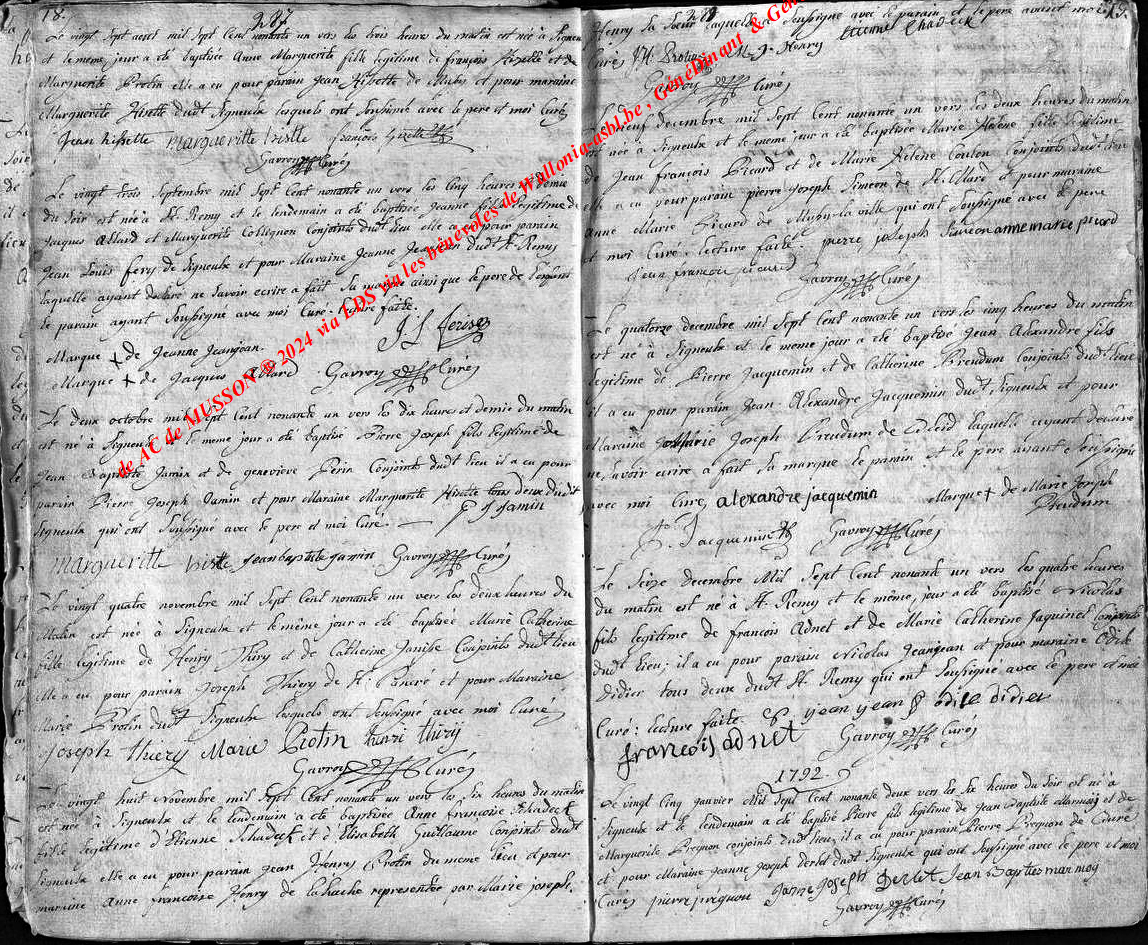 18.
287
Le vingt sept aout mil sept Cent nonante un vers les trois heures du matin est née à Signeulx
et le meme jour a été baptisée Anne Marguerite fille legitime de françois Hizette et de
Marguerite Protin elle a eu pour parain Jean Hizette de et pour maraine
Marguerite Hizette dudt Signeulx lesquels ont soussigné avec le pere et moi Curé
Jean hisette margueritte histte françois hizette
Gavroy Curé
Le vingt trois Septembre mil Sept Cent nonante un vers les Cinq heures et demie
du Soir est née à St. Remy et le lendemain a été baptisée Jeanne fille legitime de
Jacques Allard et Marguerite Collignon Conjoints dudt lieu elle a eu pour parain
Jean Louis fery de Signeulx et pour Maraine Jeanne Jeanjean dudt St. Remy
laquelle ayant declaré ne savoir ecrire a fait sa marque ainsi que le pere de l'enfant
le parain ayant soussigné avec moi Curé. lecture faitte.
J L
Marque + de Jeanne Jeanjean.
Marque + de Jacques Allard Gavroy Curé
Le deux octobre mil sept Cent nonante un vers les dix heures et demie du matin
est né à Signeulx et le meme jour a été baptisé Pierre Joseph fils legitime de
Jean Baptiste Jamin et de genevieve Perin Conjoints dudt lieu il a eu pour
parain Pierre Joseph Jamin et pour Maraine Marguerite Hizette tous deux dudit
Signeulx qui ont soussigné avec le pere et moi Curé. P J Jamin
margueritte histte jean baptiste jamin Gavroy Curé
Le vingt quatre novembre mil Sept Cent nonante un vers les deux heures du
Matin est née à Signeulx et le même jour a été baptisée Marie Catherine
fille legitime de Henry Thiry et de Catherine Conjoints dudt lieu
elle a eu pour parain Joseph Thiery de St. Pancré et pour Maraine
Marie Protin dudt Signeulx lesquels ont soussigné avec moi Curé
Joseph thiery Marie Protin henri thiry
Gavroy Curé
Le vingt huit Novembre mil Sept Cent nonante un vers les Six heures du matin
est née à Signeulx et le lendemain a été baptisée Anne françoise Schadeck
fille legitime d'Etienne Schadeck et d'Elisabeth Guillaume Conjoints dudt
Signeulx elle a eu pour parain Jean Henry Protin du meme lieu et pour
maraine Anne francoise Henry de lahache representée par Marie joseph
288
19.
Henry sa Soeur laquelle a Soussigné avec le parain et le pere avec moi
Curé J H Protin M J Henry Etienne Chadeck
Gavroy Curé
Le neuf decembre mil Sept Cent nonante un vers les deux heures du matin
est née à Signeulx et le meme jour a été baptisée Marie Helene fille legitime
de Jean françois Picard et de Marie Helene Coulon Conjoints dudt lieu
elle a eu pour parain pierre Joseph Simeon de St. Mard et pour maraine
Anne Marie Picard de Musson la ville qui ont soussigné avec le pere
et moi Curé. lecture faite. pierre joseph Simeon anne marie picard
jean françois picard Gavroy Curé
Le quatorze decembre mil Sept Cent nonante un vers les cinq heures du matin
est né à Signeulx et le meme jour a été baptisé Jean Alexandre fils
legitime de Pierre Jacquemin et de Catherine Preudum Conjoints dudt lieu
il a eu pour parain Jean Alexandre Jacquemin dudt Signeulx et pour
Maraine Marie Joseph Preudum de laquelle ayant declaré
ne savoir ecrire a fait sa marque le parain et le pere ayant soussigné
avec moi Curé, alexandre jacquemin Marque + de Marie Joseph
Preudum
P. Jacquemin Gavroy Curé
Le Seize decembre Mil Sept Cent nonante un vers les quatre heures
du matin est né à St. Remy et le même jour a été baptisé Nicolas
fils legitime de françois Adnet et de Marie Catherine Jaquinet Conjoints
dudt lieu; il a eu pour parain Nicolas Jeanjean et pour maraine Odile
Didier tous deux dudt St. Remy qui ont soussigné avec le pere et moi
Curé: lecture faite. yean yean odile didier
francois adnet Gavroy Curé
1792.
Le vingt Cinq janvier Mil Sept Cent nonante deux vers les Six heures du Soir est né à
Signeulx et le lendemain a été baptisé Pierre fils legitime de Jean Baptiste et de
Marguerite Preignon conjoints dudt lieu, il a eu pour parain Pierre Preignon de
et pour Maraine Jeanne Joseph Derlet dudt Signeulx qui ont soussigné avec le pere et moi
Curé pierre préguon Janne Joseph Derlet Jean Baptiste marmoy
Gavroy Curé
de AC de MUSSON ® 2024 via EDS via les bénévoles de Wallonia-asbl.be , Généĺimant & Gén